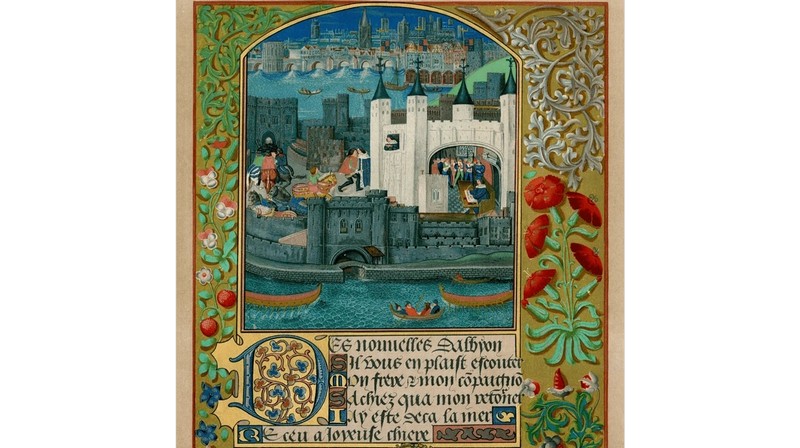 Des nouuelles Dalbyon
Sil vous en plaist escouter
Mon frere & mon cōpaignō
Sachez qua mon retorner
Iay este deca la mer
Receu a Joyeuse chiere